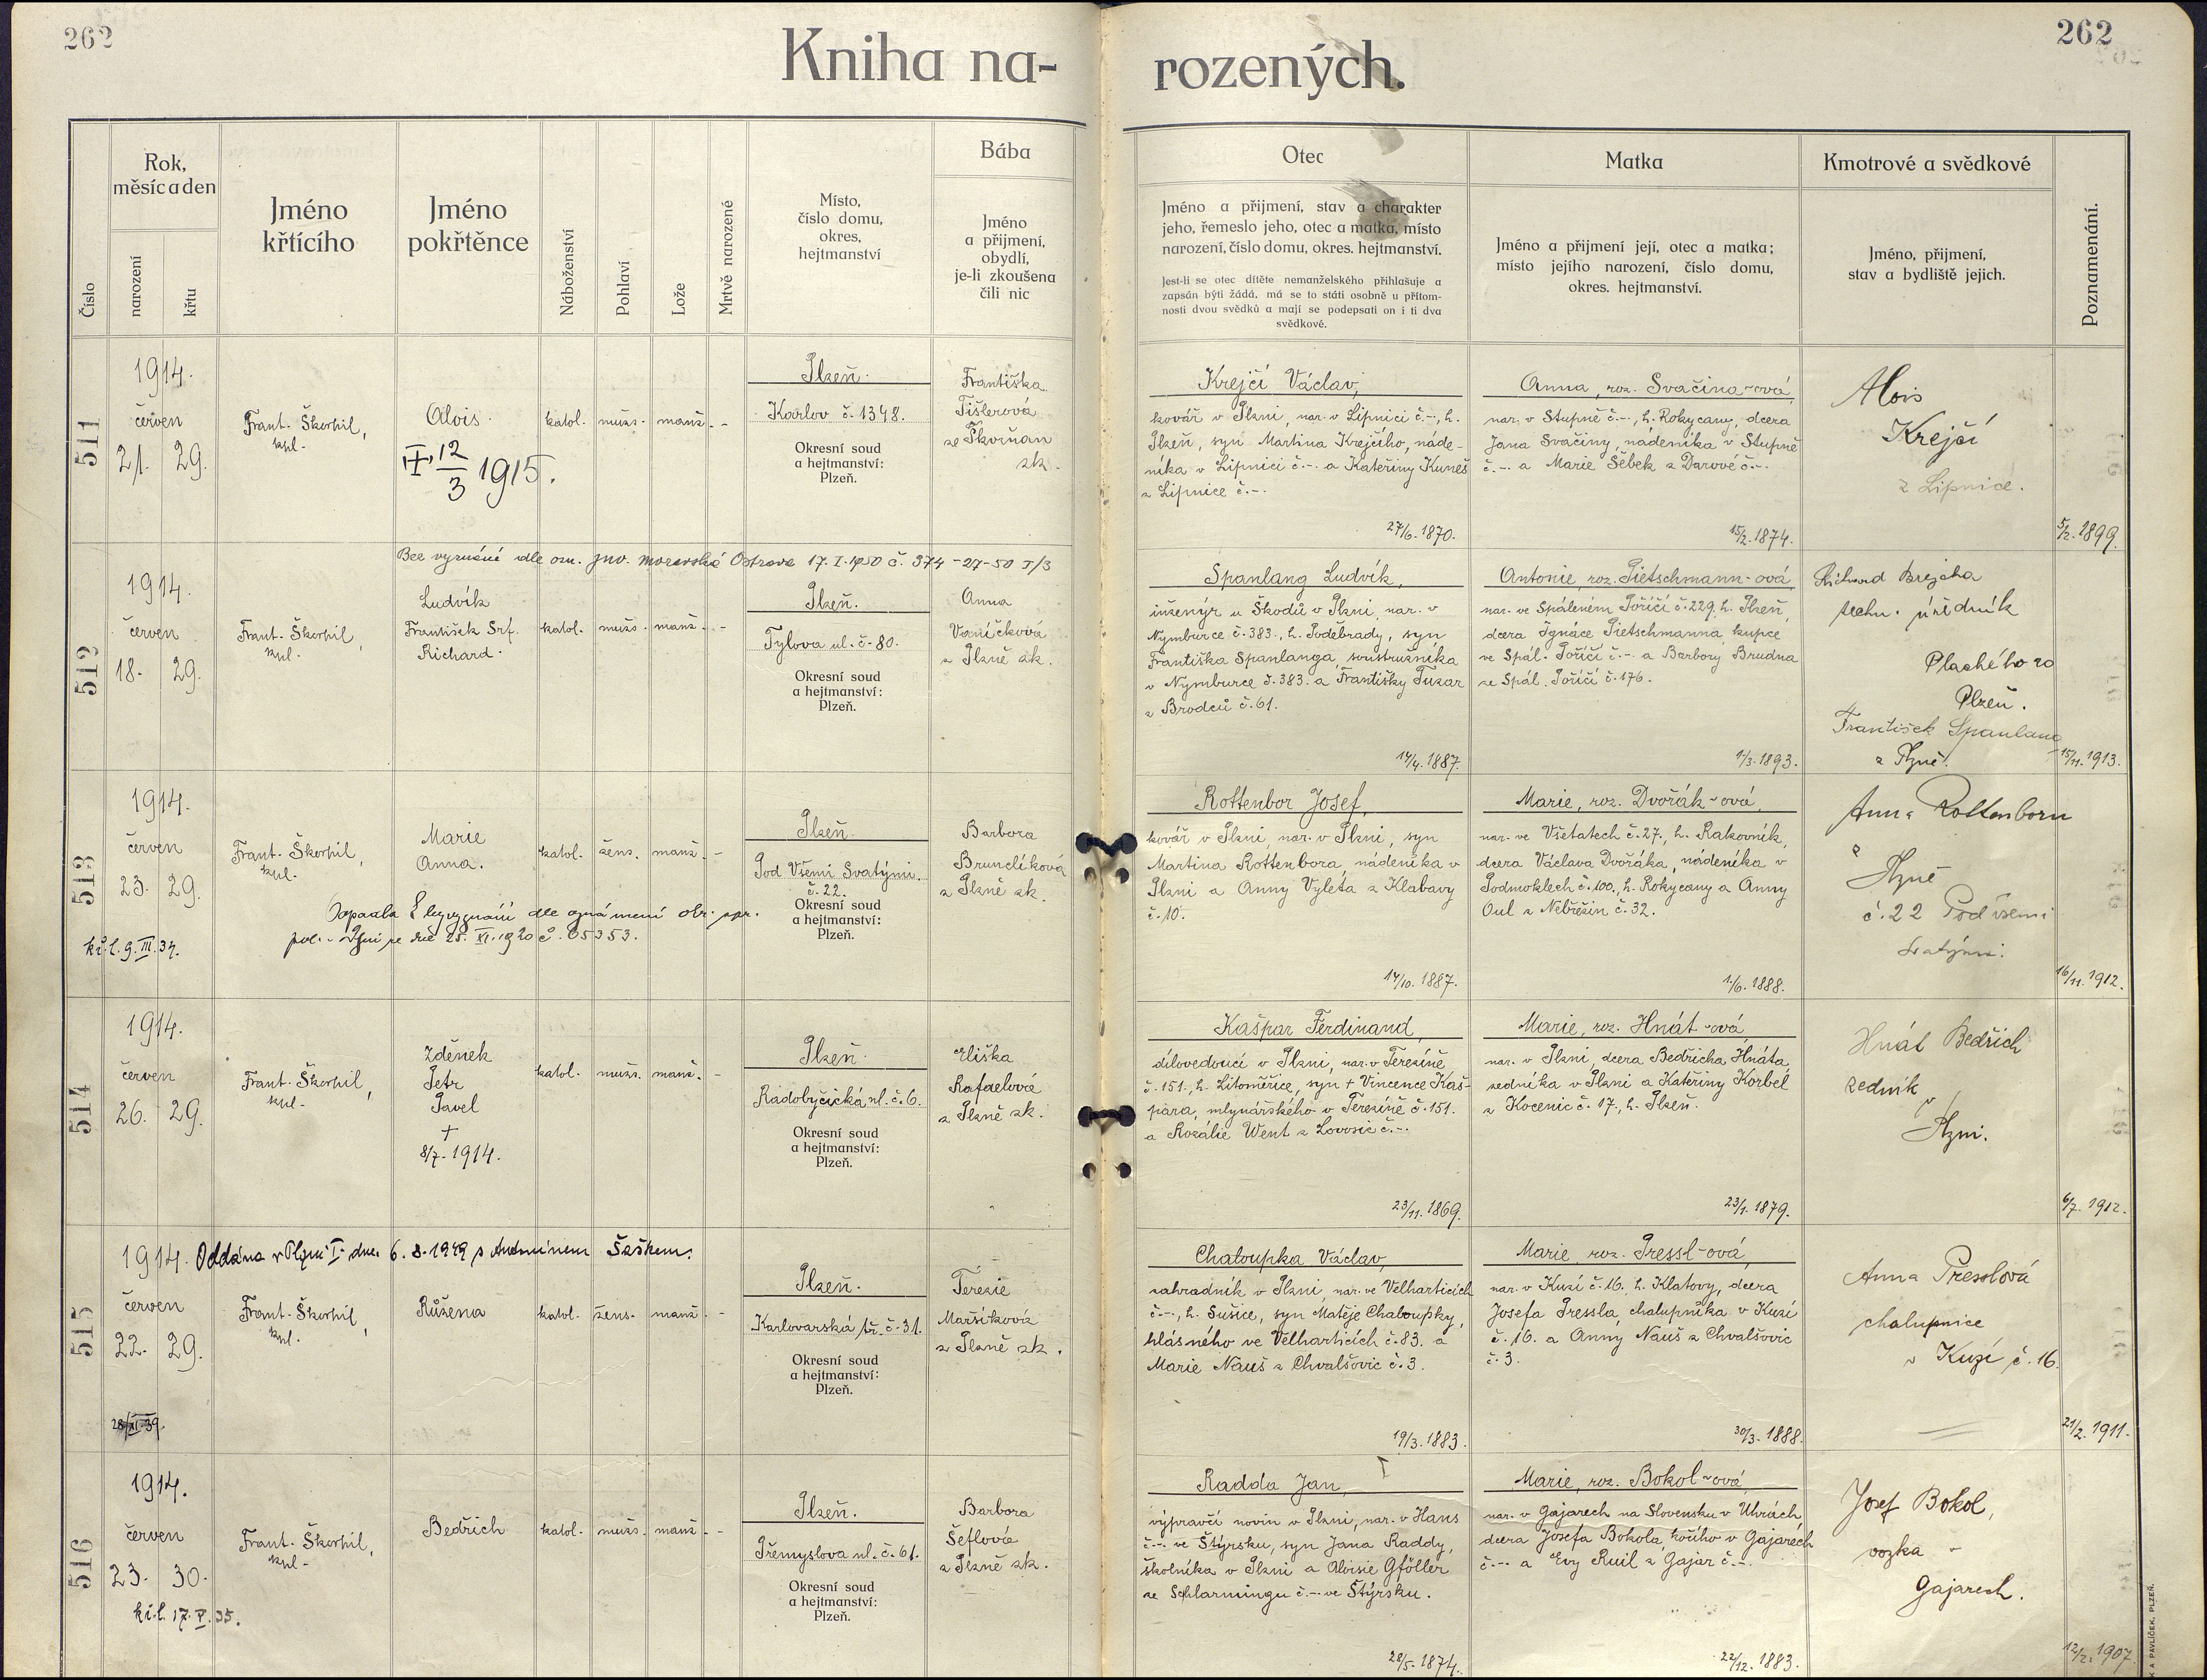 262
262
Kniha na-
rozených.
Číslo
Rok,
měsíc a den
narození
křtu
Jméno
křtícího
Jméno
pokřtěnce
Náboženství
Pohlaví
Lože
Mrtvě narozené
Místo,
číslo domu,
okres,
hejtmanství
Bába
Jméno
a příjmení,
obydlí,
je-li zkoušena
čili nic
Otec
Jméno a přijmení, stav a charakter
jeho, řemeslo jeho, otec a matka, místo
narození, číslo domu, okres. hejtmanství.
Jest-li se otec dítěte nemanželského přihlašuje a
zapsán býti žádá, má se to státi osobně u přítom-
nosti dvou svědků a mají se podepsati on i ti dva
svědkové.
Matka
Jméno a přijmení její, otec a matka;
místo jejího narození, číslo domu,
okres. hejtmanství.
Kmotrové a svědkové
Jméno, přijmení,
stav a bydliště jejich.
Poznamenání.
511
1914.
červen
21. 29.
Frant. Škorpil,
kpl.
Alois.
12/3 1915.
katol. muž. manž. -
Plzeň.
Karlov č. 1348.
Okresní soud
a hejtmanství:
Plzeň.
Františka
Tišlerová
ze Skvrňan
zk.
Krejčí Václav,
kovář v Plzni, nar. v Lipnici č.-, h.
Plzeň, syn Martina Krejčího, náde-
níka v Lipnici č.- a Kateřiny Kuneš
z Lipnice č.-.
27/6. 1870.
Anna, roz. Svačina-ová,
nar. v Stupně č.-, h. Rokycany, dcera
Jana Svačiny, nádeníka v Stupně
č.- a Marie Šebek z Darové č.-.
15/2. 1874.
Alois
Krejčí
z Lipnice.
5/2. 1899.
512
Bez vyznání dle ozn. JNV. Moravská Ostrava 17. I. 1950 č. 374-27-50 I/3
1914.
červen
18. 29.
Frant. Škorpil,
kpl.
Ludvík
František Srf.
Richard.
katol. muž. manž. -
Plzeň.
Tylova ul. č. 80.
Okresní soud
a hejtmanství:
Plzeň.
Anna
Vaníčková
z Plzně zk.
Spanlang Ludvík,
inženýr u Škodů v Plzni, nar. v
Nymburce č. 383., h. Poděbrady, syn
Františka Spanlanga, soustružníka
v Nymburce č. 383. a Františky Tuzar
z Brodců č. 61.
14/4. 1887.
Antonie, roz. Pietschmann-ová,
nar. ve Spáleném Poříčí č. 229, h. Plzeň,
dcera Ignáce Pietschmanna, kupce
ve Spál. Poříčí č.- a Barbory Brudna
ze Spál. Poříčí č. 176.
1/3. 1893.
Richard Brejcha
techn. úředník
Plachého 20
Plzeň.
František Spanlang
z Plzně.
15/11. 1913.
513
1914.
červen
23. 29.
kř. l. 9. III. 37.
Frant. Škorpil,
kpl.
Marie
Anna.
katol. žens. manž. -
Zapsala bez vyznání dle oznámení okr. spr.
pol. v Plzni ze dne 25. XI. 1920 č. 65353.
Plzeň.
Pod Všemi Svatými.
č. 22.
Okresní soud
a hejtmanství:
Plzeň.
Barbora
Brunclíková
z Plzně zk.
Rottenbor Josef,
kovář v Plzni, nar. v Plzni, syn
Martina Rottenbora, nádeníka v
Plzni a Anny Vyleta z Klabavy
č. 10.
14/10. 1887.
Marie, roz. Dvořák-ová,
nar. ve Všetatech č. 27., h. Rakovník,
dcera Václava Dvořáka, nádeníka v
Podmoklech č. 100., h. Rokycany a Anny
Oul z Nebřežin č. 32.
1/6. 1888.
Anna Rottenborn
z
Plzně
č. 22 Pod všemi
svatými.
16/11. 1912.
514
1914.
červen
26. 29.
Frant. Škorpil,
kpl.
Zdeněk
Petr
Pavel
+
8/7. 1914.
katol. muž. manž. -
Plzeň.
Radobyčická ul. č. 6.
Okresní soud
a hejtmanství:
Plzeň.
Eliška
Rafaelová
z Plzně zk.
Kašpar Ferdinand,
dílovedoucí v Plzni, nar. v Terezíně
č. 151., h. Litoměřice, syn + Vincence Kaš-
para, mlynářského v Terezíně č. 151.
a Rozálie Went z Lovosic č.-.
23/11. 1869.
Marie, roz. Hnát-ová,
nar. v Plzni, dcera Bedřicha Hnáta,
zedníka v Plzni a Kateřiny Korbel
z Kocenic č. 17., h. Plzeň.
23/1. 1879.
Hnát Bedřich
zedník
v
Plzni.
6/7. 1912.
515
1914. Oddána v Plzni I. dne 6. 8. 1949 s Antonínem Šaškem.
červen
22. 29.
28/XI. 39.
Frant. Škorpil,
kpl.
Růžena
katol. žens. manž. -
Plzeň.
Karlovarská tř. č. 31.
Okresní soud
a hejtmanství:
Plzeň.
Terezie
Maršíková
z Plzně zk.
Chaloupka Václav,
zahradník v Plzni, nar. ve Velharticích
č.-, h. Sušice, syn Matěje Chaloupky,
hlásného ve Velharticích č. 83. a
Marie Nauš z Chvalšovic č. 3.
19/3. 1883.
Marie, roz. Pressl-ová,
nar. v Kuzí č. 16. h. Klatovy, dcera
Josefa Pressla, chalupníka v Kuzí
č. 16. a Anny Nauš z Chvalšovic
č. 3.
30/3. 1888.
Anna Presslová
chalupnice
v Kuzí č. 16.
21/2. 1911.
516
1914.
červen
23. 30.
kř. l. 17. V. 35.
Frant. Škorpil,
kpl.
Bedřich
katol. muž. manž. -
Plzeň.
Přemyslova ul. č. 61.
Okresní soud
a hejtmanství:
Plzeň.
Barbora
Šeflová
z Plzně zk.
Radda Jan,
výpravčí novin v Plzni, nar. v Haus
č.- ve Štýrsku, syn Jana Raddy,
školníka v Plzni a Aloisie Gföller
ze Schlarmingu č.- ve Štýrsku.
28/5. 1874.
Marie, roz. Bokol-ová,
nar. v Gajarech na Slovensku v Uhrách,
dcera Josefa Bokola, kočího v Gajarech
č.- a Evy Ruil z Gajar č.-.
22/12. 1883.
Josef Bokol,
vozka -
Gajarech.
12/2. 1907.
K A PAVLÍČEK, PLZEŇ.